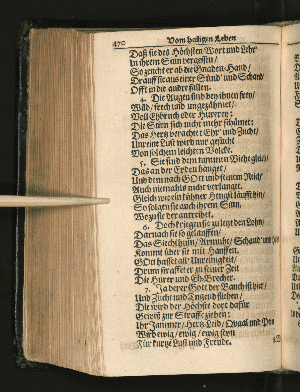 470 Vom heiligen Leben
Daß sie des Höchsten Wort und Lehr
In ihrem Sinn vergessen/
So zeucht er ab die Gnaden-Hand/
Drauff sie aus einer Sünd' und Schand
Offt in die andre fallen.
4. Die Augen sind bey ihnen frey/
Wild/frech und ungezähmet/
Voll Ehbruch oder Hurerey:
Die Stirn sich nicht mehr schämet:
Das Hertz verachtet Ehr' und Zucht/
Unreine Lust wird nur gesucht
Von solchem leichtem Volcke.
5. Sie sind dem tummen Vieh gleich/
Das an der Erden henget/
Und dem nach GOtt und seinem Reich
Auch niemahls nicht verlanget.
Gleich wie ein kühner Hengst läufft hin/
So folgen sie auch ihrem Sinn/
Wozu sie der antreibet.
6. Doch kriegen sie zuletzt den Lohn/
Darnach sie so gelauffen/
Das Siechthum/Armuht/Schaud und
Kommt über sie mit Hauffen.
GOtt hasset all' Unreinigkeit/
Drum straffet er zu seiner Zeit
Die Hurer und Eh-Brecher.
7. Ja derer GOtt der Bauch ist hier/
Und Zucht und Tugend fliehen/
Die wird der Höchste dort dafür
Gewiß zur Straffe ziehen:
Ihr Jammer/Hertz-Leid/Qwaal und Pein
Wird ewig/ewig/ewig seyn
Für kurtze Lust und Freude.